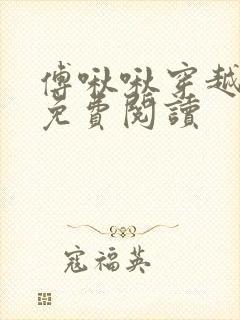 傅啾啾穿越
免費閱讀
寇福英